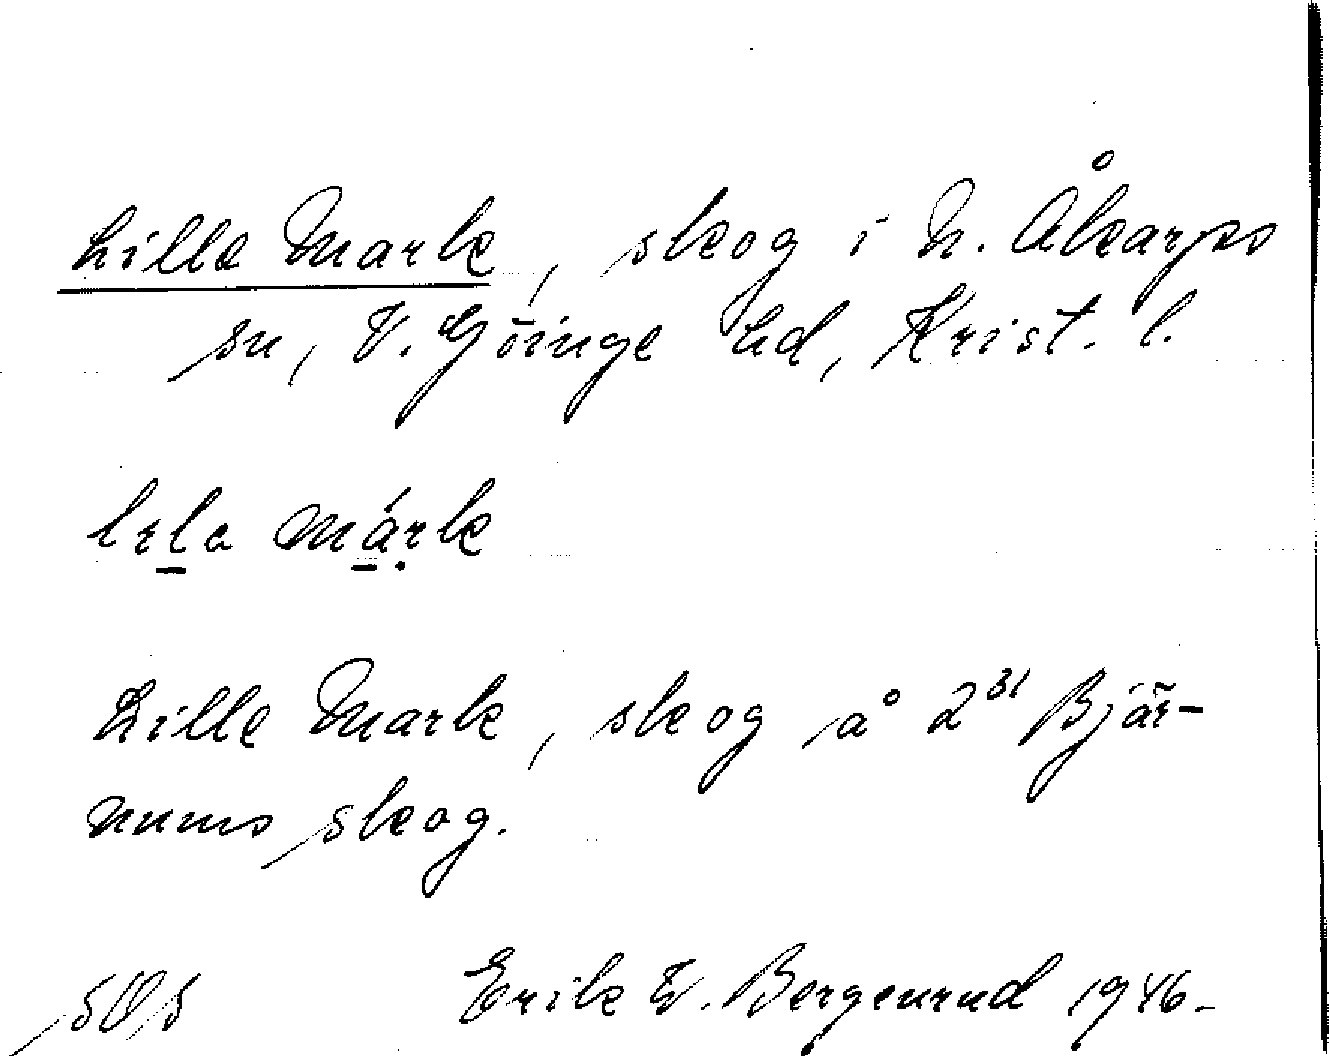 Lilla Mark, skog i N. Åkarps
sn, V. Göinge hd, Krist. l.
lɩla márk
Lille Mark, skog å 2³¹ Bjär-
nums skog.
Erik W. Bergenrud 1946.